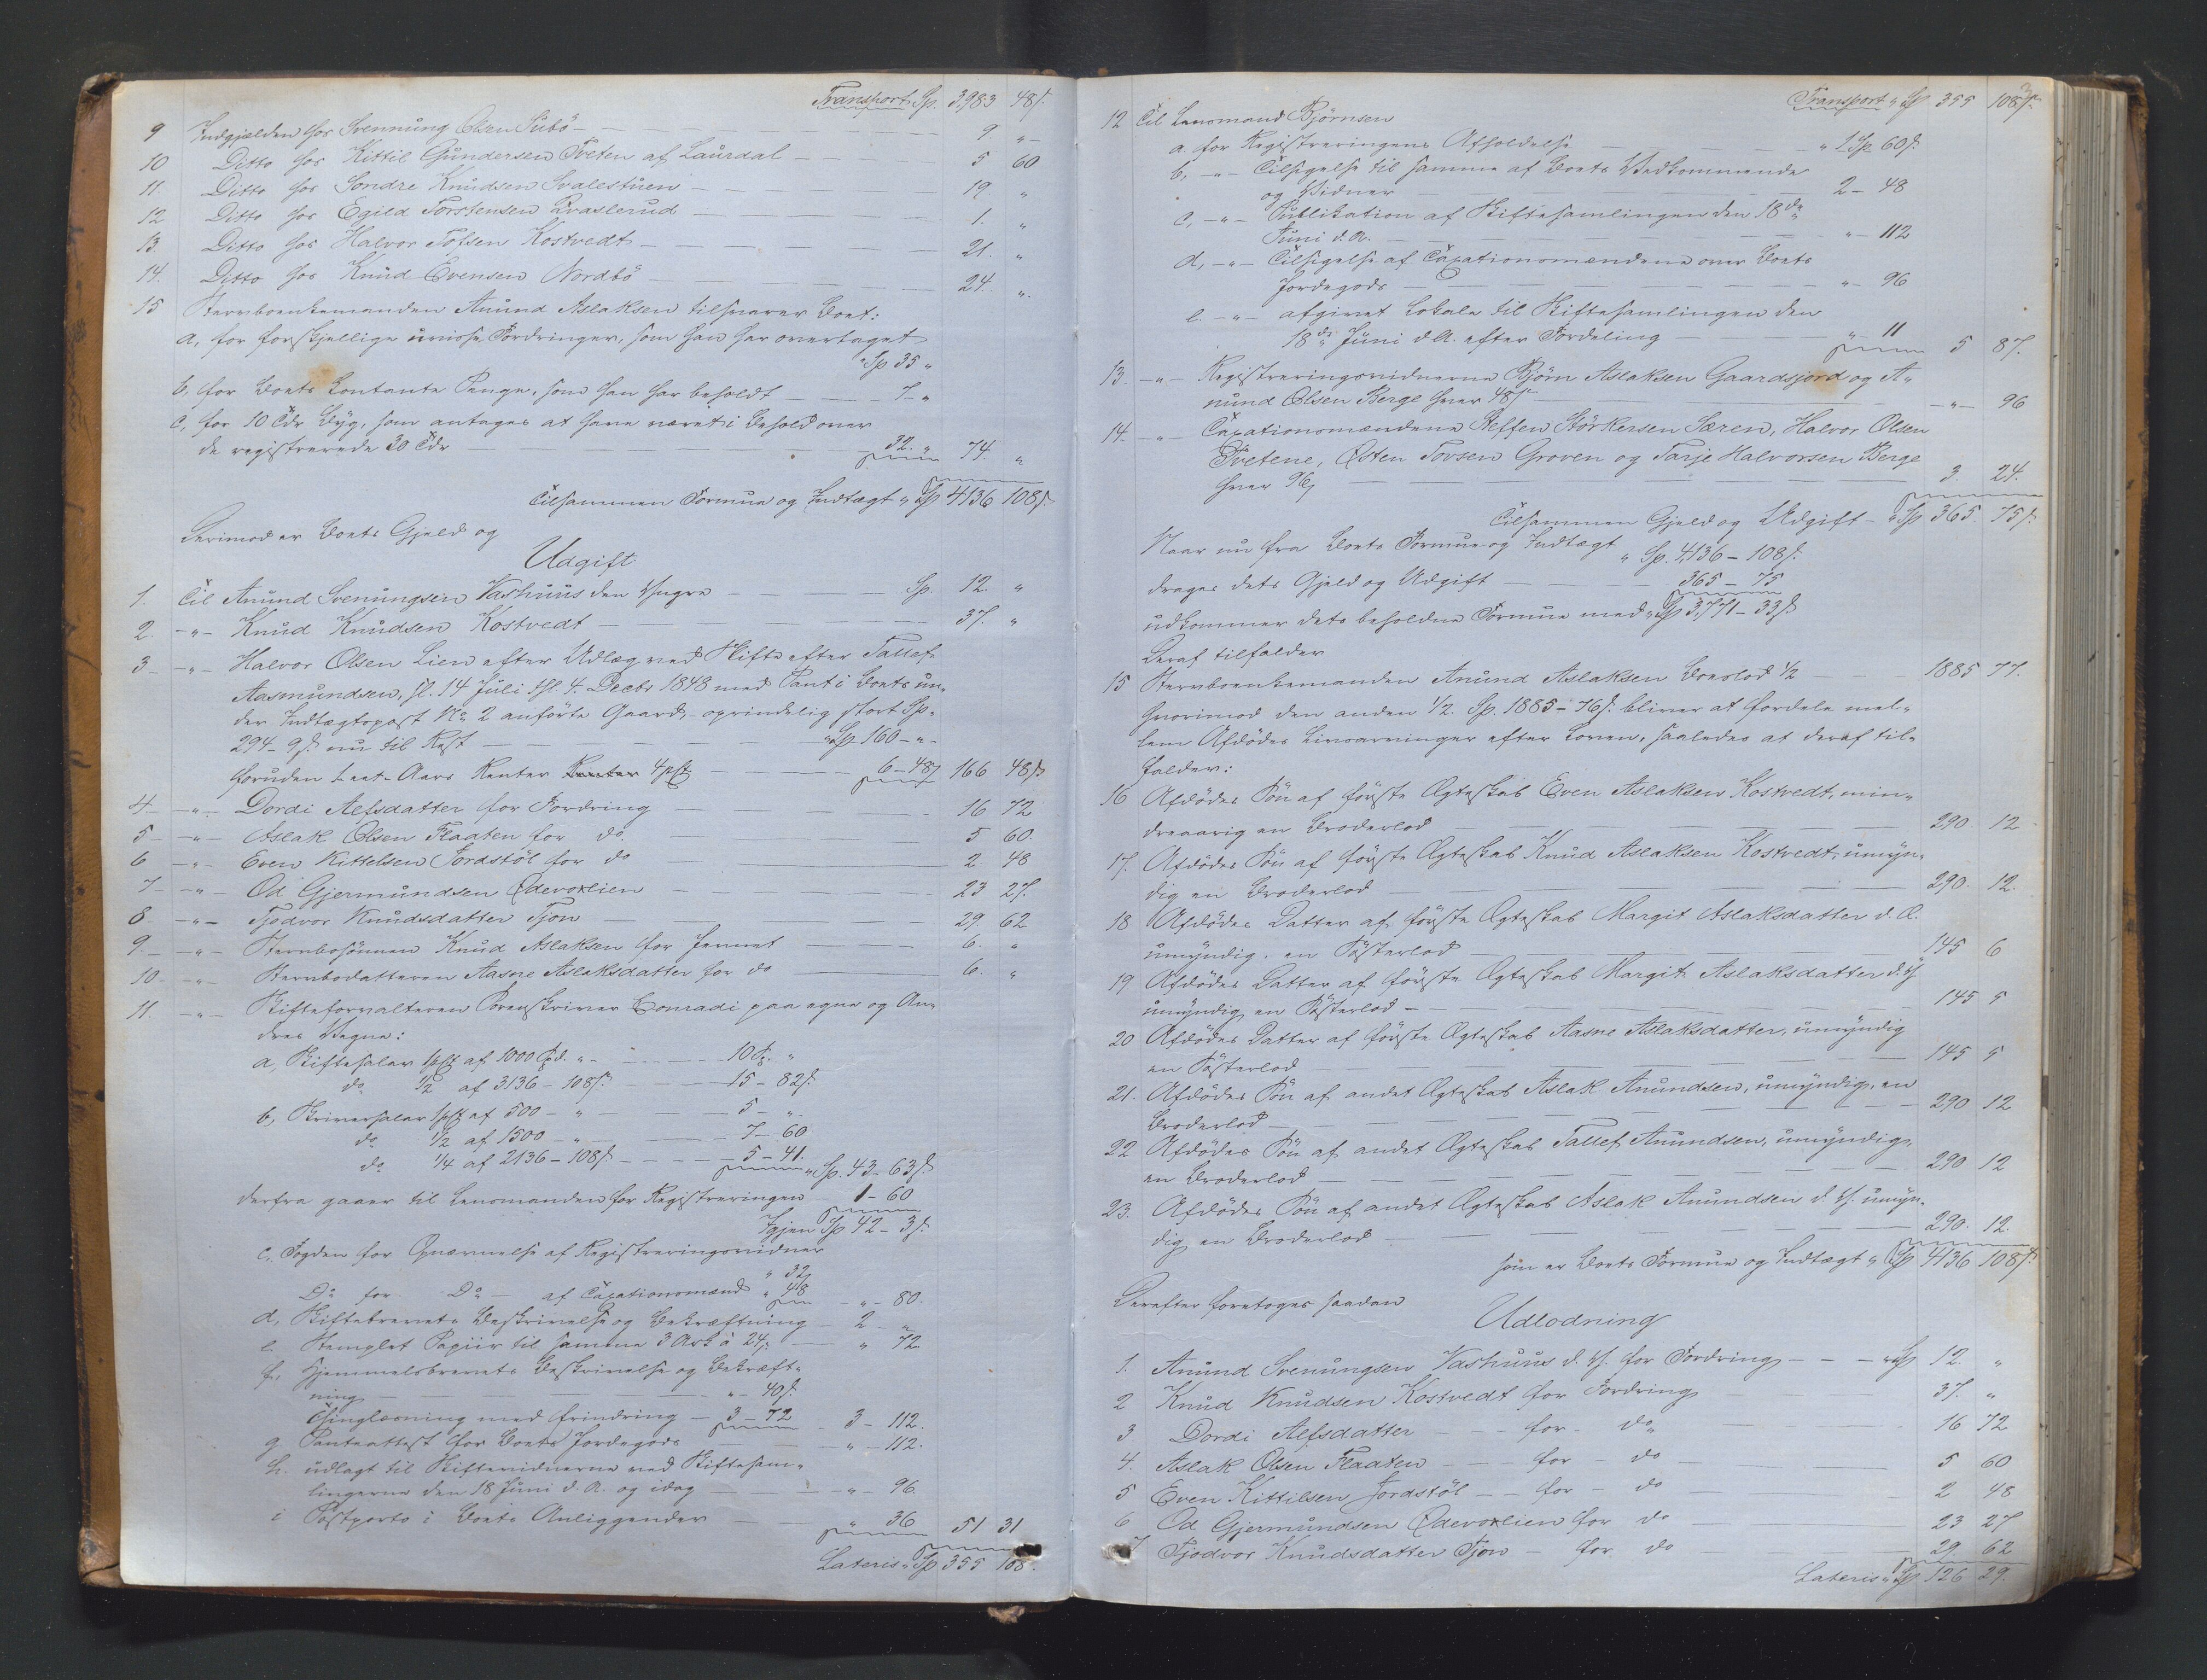 Transport Sp. 3,983 48 ß.
9 Indgjælden hos Svennung Olsen Subö — 9. "
10 Ditto hos Kittil Gundersen Tveten af Laurdal — 5 60
11. Ditto hos Sondre Knudsen Svalestuen — 19 "
12. Ditto hos Egild Torstensen Qvaslerud — 1. "
13. Ditto hos Halvor Tofsen Kostvedt — 21. "
14. Ditto hos Knud Evensen Nordbö — 24. "
15 Stervboenkemanden Anund Aslaksen tilsvarer Boet:
a, for forskjellige uvisse Fordringer, som han har overtaget
" Sp 35 "
b, for Boets Contante Penge, som han har beholdt — 7 - "
c, for 10 Tdr Byg, som antages at have været i Behold over
de registrerede 30 Tdr — 32. " 74. "
Tilsammen Formue og Indtægt " Sp 4136 108 ß.
Derimod er Boets Gjeld og
Udgift
1. Til Anund Svenungsen Vashuus den Yngre — Sp. 12. "
2. - " - Knud Knudsen Kostvedt — 37. "
3 - " - Halvor Olsen Lien efter Udlæg ved Skifte efter Tallef
Aasmundsen, sl. 14 Juli thl. 4. Decbr 1848 med Pant i Boets un-
der Indtægtspost No 2 anförte Gaard, oprindelig stort Sp.
294 - 9 ß. nu til Rest — " Sp 160 - " -
foruden 1 aars Renter 4 pCt — 6 - 48 166 48 ß.
4 - " - Dordi Aefsdatter for Fordring — 16 72
5 - " - Aslak Olsen Flaaten for do — 5 60.
6 - " - Even Kittelsen Jordstöl for do — 2 48
7 - " - Od Gjermundsen Ødevoxlien — 23 27.
8. - " - Tjodvor Knudsdatter Tjon — 29 62
9. - " - Stervbosönnen Knud Aslaksen for Jernet — 6. "
10. - " - Stervbodatteren Aasne Aslaksdatter for do — 6. "
11. - " - Skifteforvalteren Sorenskriver Conradi paa egne og An-
dres Vegne:
a, Skiftesalar 1 pCt af 1000 Spd. " - — 10 Sp. "
do ½ af 3136 - 108 ß. — 15 - 82 ß.
b, Skriversalar 1 pCt af 500 - " — 5 - "
do ½ af 1500 - " — 7 - 60
do ¼ af 2136 - 108 ß — 5 - 41. " Sp. 43 - 63 ß.
derfra gaaer til Lensmanden for Registreringen — 1 - 60
Igjen Sp 42 - 3 ß.
c, Fogden for Opnævnelse af Registreringsvidner
" 32
Do for Do — af Taxationsmænd " 48 " - 80.
d, Skiftebrevets Beskrivelse og Bekræftning — 2 - "
e. Stemplet Papiir til samme 3 Ark à 24 ß — " 72.
f, Hjemmelsbrevets Beskrivelse og Bekræft-
ning — " - 40 ß.
Thinglæsning med Erindring — 3 - 72 3 - 112.
g Panteattest for Boets Jordegods — " - 112.
h. udlagt til Skiftevidnerne ved Skiftesam-
lingerne den 18 Juni d. A. og idag — " - 96.
i Postporto i Boets Anliggender — " 36 51 31
Lateris " Sp 355 108.
Transport " Sp 355 108 ß.
12 Til Lensmand Björnsen
a. for Registreringens Afholdelse — " 1 Sp 60 ß.
b, - " - Tilsigelse til samme af Boets Vedkommende
og Vidner — 2 - 48
c, - " - Publikation af Skiftesamlingen den 18de
Juni d. A. — " - 112
d, - " - Tilsigelse af Taxationsmændene over Boets
Jordegods — " - 96
e. - " - afgivet Lokale til Skiftesamlingen den
18de Juni d. A. efter Fordeling — " 11 5 87.
13. - " - Registreringsvidnerne Björn Aslaksen Gaardsjord og A-
nund Olsen Berge hver 48 ß — " - 96
14. - " - Taxationsmændene Steffen Störkersen Særen, Halvor Olsen
Tvetene, Østen Tovsen Groven og Tarje Halvorsen Berge
hver 96 — 3. 24.
Tilsammen Gjeld og Udgift — " Sp 365. 75 ß.
Naar nu fra Boets Formue og Indtægt " Sp. 4136 - 108 ß.
drages dets Gjeld og Udgift — 365 - 75
udkommer dets beholdne Formue med " Sp 3,771 - 33 ß
Deraf tilfalder
15 Stervboenkemanden Anund Aslaksen Boeslod ½ — 1885 77.
hvorimod den anden ½. Sp. 1885 - 76 ß. bliver at fordele mel-
lem Afdödes Livsarvinger efter Loven, saaledes at deraf til-
falder:
16 Afdödes Sön af förste Ægteskab Even Aslaksen Kostvedt, min-
dreaarig en Broderlod — 290 12
17. Afdödes Sön af förste Ægteskab Knud Aslaksen Kostvedt, umyn-
dig en Broderlod — 290. 12.
18 Afdödes Datter af förste Ægteskab Margit Aslaksdatter d. Æ.
umyndig. en Sösterlod — 145 6
19 Afdödes Datter af förste Ægteskab Margit Aslaksdatter d. Y
umyndig en Sösterlod — 145 5
20 Afdödes Datter af förste Ægteskab Aasne Aslaksdatter, umyndig
en Sösterlod — 145 5
21. Afdödes Sön af andet Ægteskab Aslak Anundsen, umyndig, en
Broderlod — 290 12
22 Afdödes Sön af andet Ægteskab Tallef Anundsen, umyndig,
en Broderlod — 290 12
23. Afdödes Sön af andet Ægteskab Aslak Anundsen d. Y. umyn-
dig en Broderlod — 290. 12.
som er Boets Formue og Indtægt " Sp 4136 108 ß.
Derefter foretoges saadan
Udlodning
1. Anund Svenungsen Vashuus d. Y. for Fordring — " Sp 12. "
2 Knud Knudsen Kostvedt for Fordring — 37. "
3 Dordi Aefsdatter — for — do — 16 72
4. Aslak Olsen Flaaten — for — do — 5 60
5 Even Kittilsen Jordstöl — for — do — 2 48
6 Od Gjermundsen Ødevoxlien for do — 23 27
7 Tjodvor Knudsdatter Tjon — for do — 29 62
Lateris " Sp 126 29.